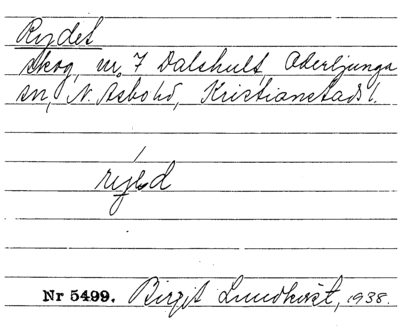 Rydet
skog, nr. 7 Dalshult, Oderljunga
sn, N. Åsbo hd, Kristianstads l.
Nr 5499. Birgit Lundkvist, 1938.